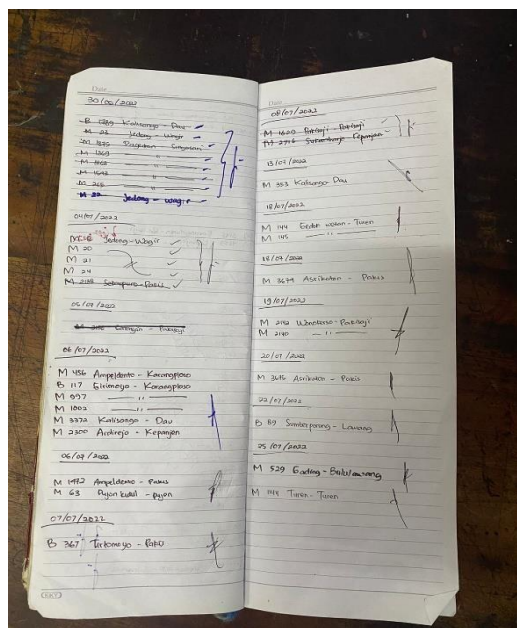 Date
30/06/2022
B 1289 Kalisongo - Dau
M 23 Jedong - Wagir
M 1835 - Singosari
M 1369 - " -
M - " -
M 1643 - " -
M 265 - " -
M 22 Jedong - Wagir
04/07/2022
Jedong - Wagir
M 20
M 21
M 24
M 2138 - Pakis
06/07/2022
- Pakisaji
06/07/2022
M 456 Ampeldento - Karangploso
B 117 Girimoyo - Karangploso
M 997 - " -
M 1002 - " -
M 3372 Kalisongo - Dau
M 2300 Ardirejo - Kepanjen
06/07/2022
M 1472 Ampeldento - Pakis
M 63 Pujon kidul - Pujon
07/07/2022
B 367 Tirtomoyo - Pakis
KIKY
Date
08/07/2022
M 1620 Pakisaji - Pakisaji
M 2716 Sukoraharjo - Kepanjen
13/07/2022
M 353 Kalisongo - Dau
18/07/2022
M 144 Gedok wetan - Turen
M 145 - " -
18/07/2022
M 3679 Asrikaton - Pakis
19/07/2022
M 2132 Wonokerso - Pakisaji
M 2140 - " -
20/07/2022
M Asrikaton - Pakis
22/07/2022
B 89 Sumberporong - Lawang
25 /07/2022
M 529 Gading - Bululawang
M Turen - Turen